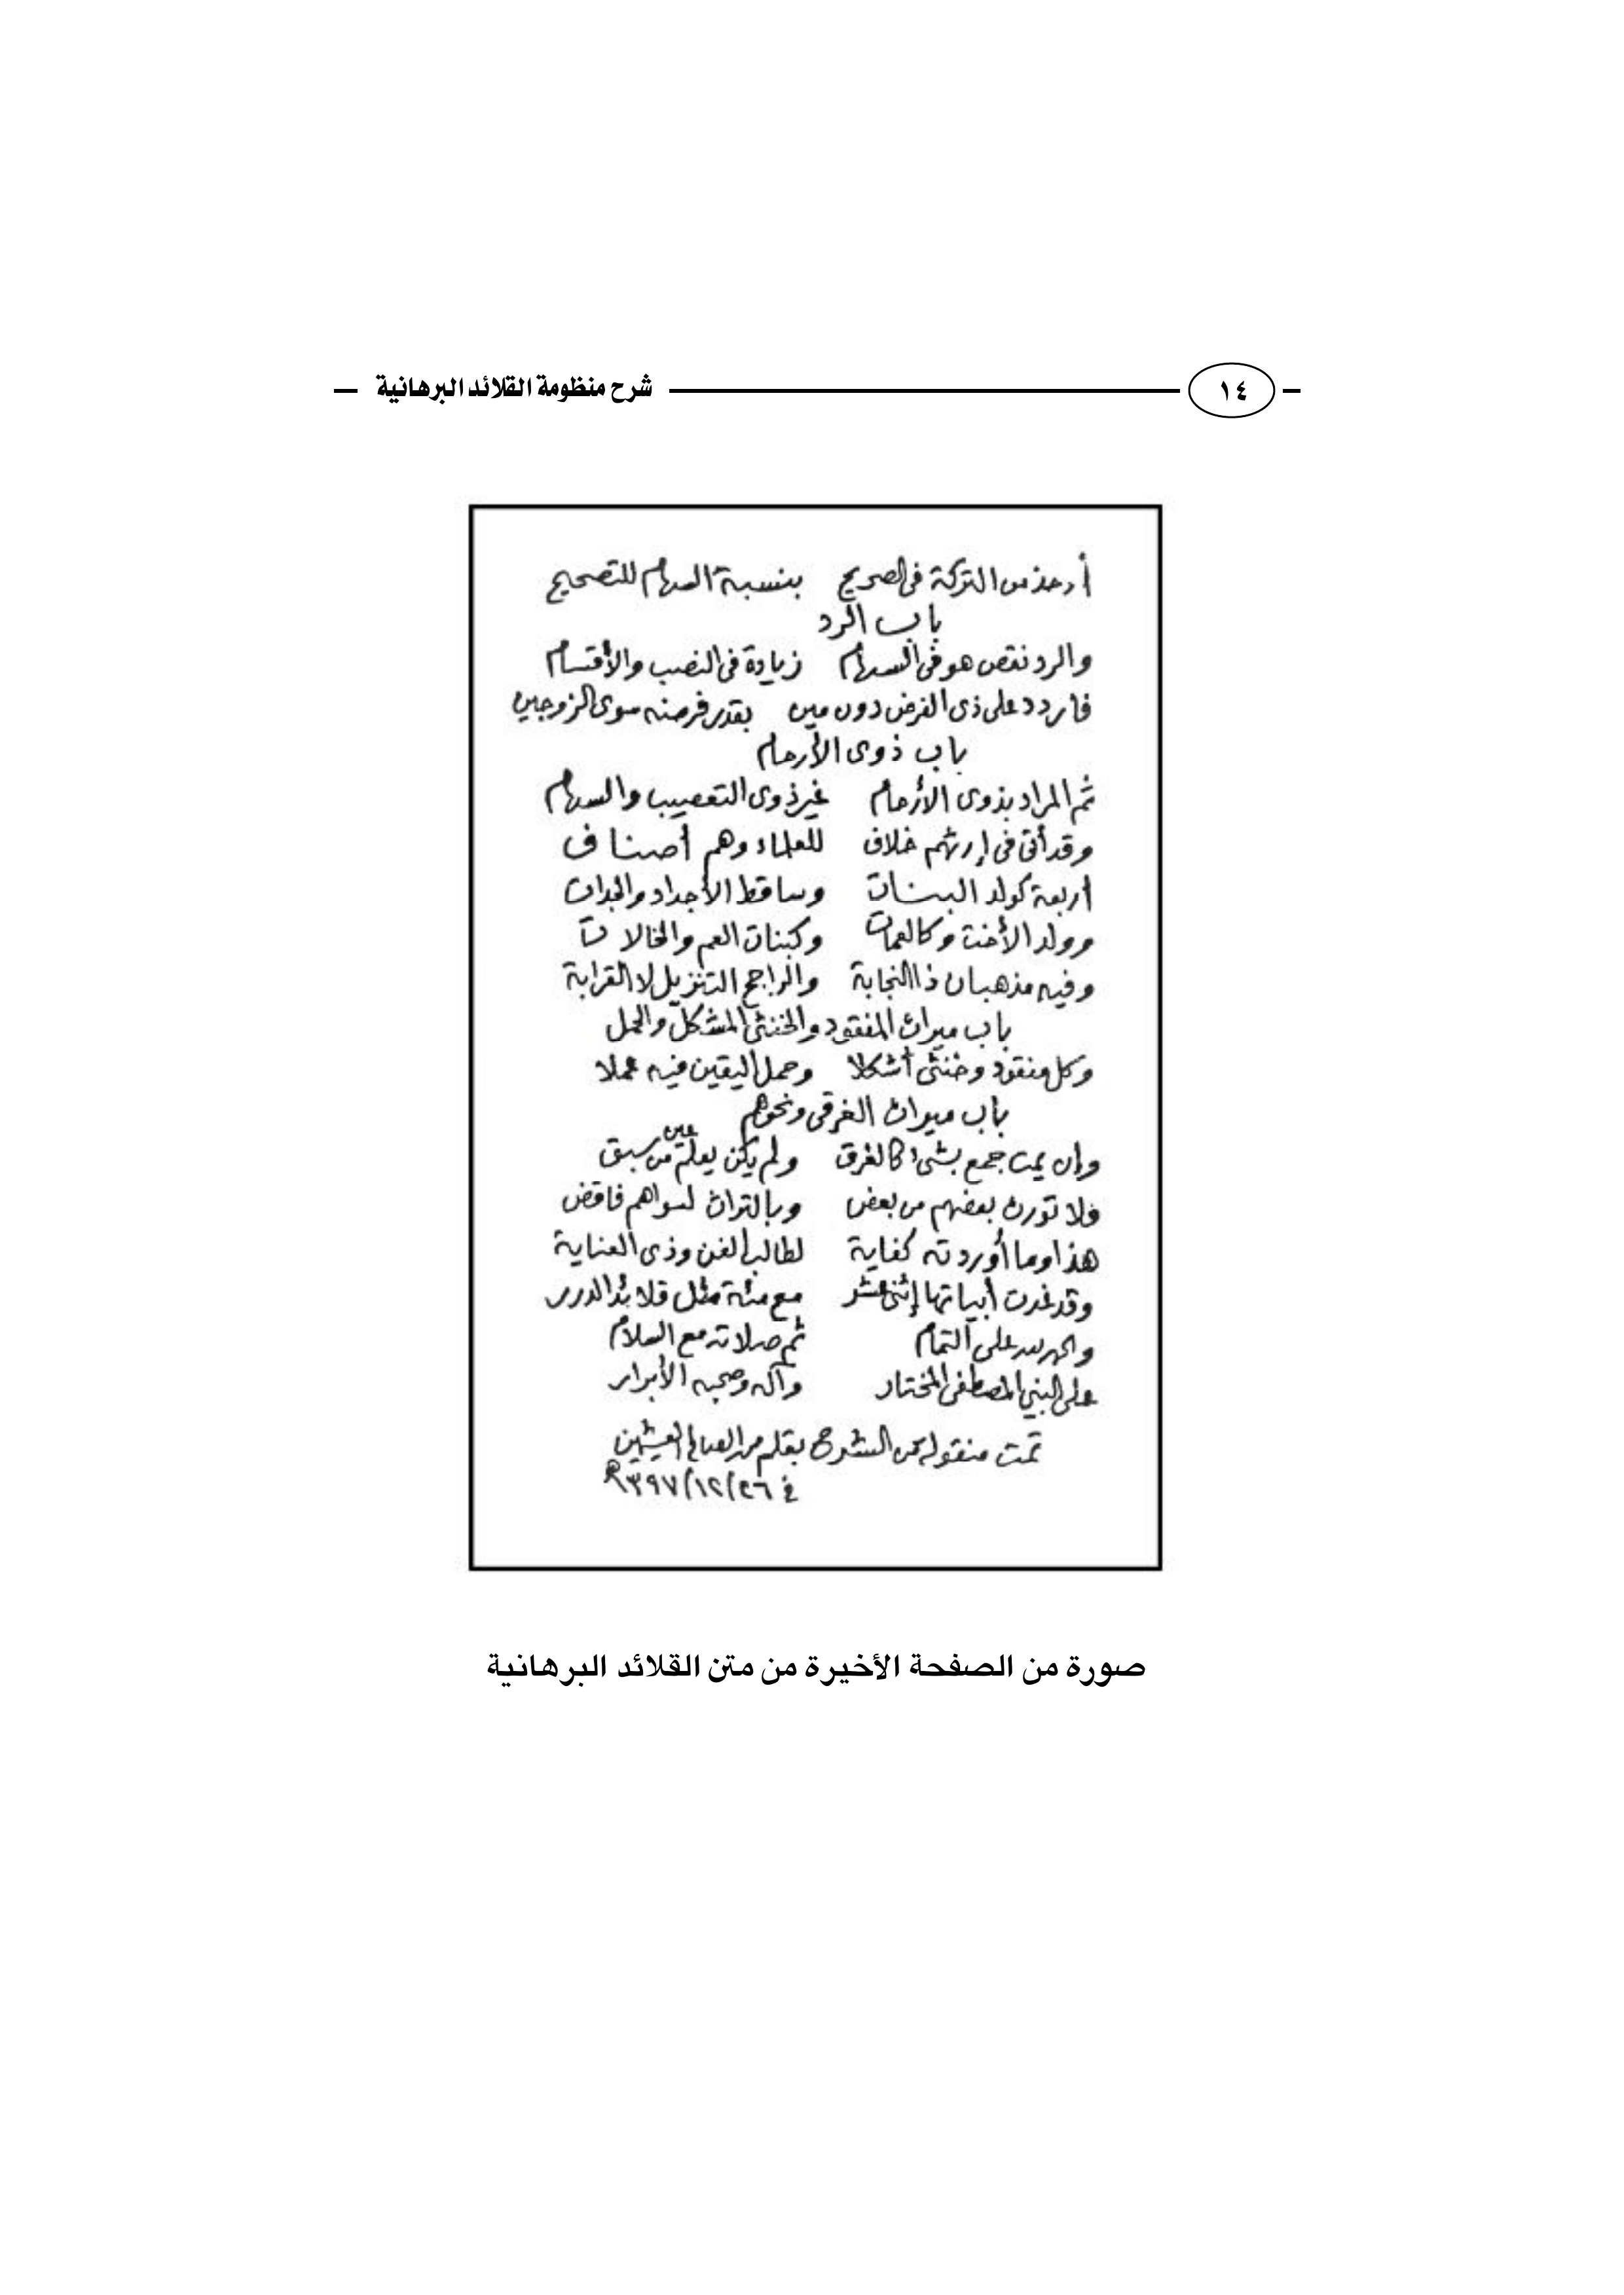 ١٤
شرح منظومة القلائد البرهانية
أو خذ من التركة في الصريح بنسبة السهام للتصحيح
باب الرد
والرد نقص هو في السهام زيادة في النصب والأقسام
فاردد على ذى الفرض دون مين بقدر فرضه سوى الزوجين
باب ذوى الأرحام
ثم المراد بذوى الأرحام غير ذوى التعصيب والسهام
وقد أتى في إرثهم خلاف للعلماء وهم أصناف
أربعة كولد البنات وساقط الأجداد والجدات
وولد الأخت وكالعمات وكبنات العم والخالات
وفيه مذهبان ذا النجابة والراجح التنزيل لا القرابة
باب ميراث المفقود والخنثى المشكل والحمل
وكل مفقود وخنثى أشكلا وحمل اليقين فيه عملا
باب ميراث الغرقى ونحوهم
وإن يمت جمع بشىء كالغرق ولم يكن يعلم عين من سبق
فلا تورث بعضهم من بعض وبالتراث لسواهم فاقض
هذا وما أوردته كفاية لطالب الفن وذى العناية
وقد غدت أبياتها إثنى عشر مع مئة مثل قلائد الدرر
والحمد لله على التمام ثم صلاته مع السلام
على النبي المصطفى المختار وآله وصحبه الأبرار
تمت منقولة من الشرح بقلم محمد الصالح العثيمين
في ٢٦/١٢/١٣٩٧هـ
صورة من الصفحة الأخيرة من متن القلائد البرهانية